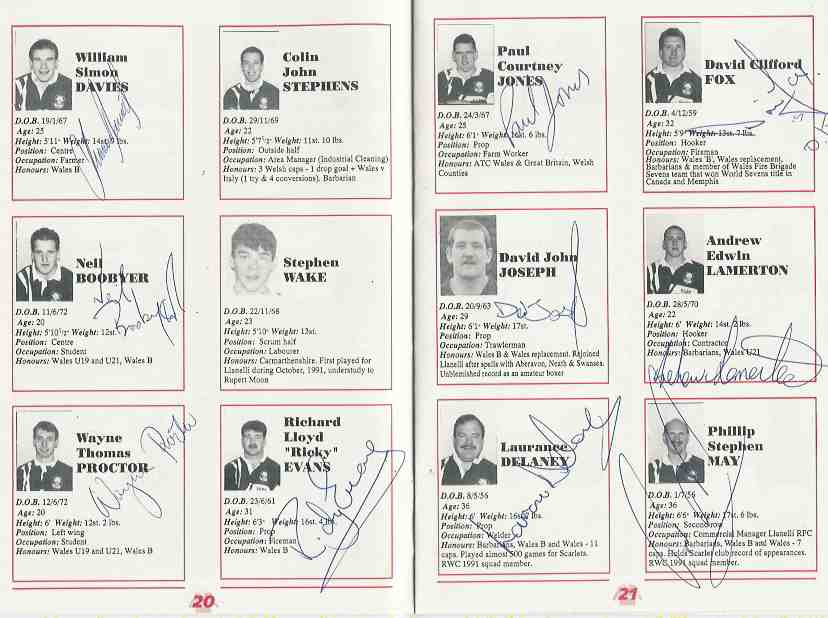 William
Simon
DAVIES
D.O.B. 19/1/67
Age: 25
Height: 5'11" Weight: 14st. lbs.
Position: Centre
Occupation: Farmer
Honours: Wales B
Colin
John
STEPHENS
D.O.B. 29/11/69
Age: 22
Height: 5'7½" Weight: 11st. 10 lbs.
Position: Outside half
Occupation: Area Manager (Industrial Cleaning)
Honours: 3 Welsh caps - 1 drop goal + Wales v
Italy (1 try & 4 conversions). Barbarian
Neil
BOOBYER
D.O.B. 11/6/72
Age: 20
Height: 5'10½" Weight: 12st.
Position: Centre
Occupation: Student
Honours: Wales U19 and U21, Wales B
Neil
Boobyer
Stephen
WAKE
D.O.B. 22/11/68
Age: 23
Height: 5'10" Weight: 12st.
Position: Scrum half
Occupation: Labourer
Honours: Carmarthenshire. First played for
Llanelli during October, 1991, understudy to
Rupert Moon
Wayne
Thomas
PROCTOR
D.O.B. 12/6/72
Age: 20
Height: 6' Weight: 12st. 2 lbs.
Position: Left wing
Occupation: Student
Honours: Wales U19 and U21, Wales B
Wayne Proctor
Richard
Lloyd
"Ricky"
EVANS
D.O.B. 23/6/61
Age: 31
Height: 6'3" Weight: 16st. 4 lbs.
Position: Prop
Occupation: Fireman
Honours: Wales B
Ricky Evans
20
Paul
Courtney
JONES
D.O.B. 24/3/67
Age: 25
Height: 6'1" Weight: 16st. 6 lbs.
Position: Prop
Occupation: Farm Worker
Honours: ATC Wales & Great Britain, Welsh
Counties
Paul Jones
David Clifford
FOX
D.O.B. 4/12/59
Age: 32
Height: 5'9" Weight: 13st. 7 lbs.
Position: Hooker
Occupation: Fireman
Honours: Wales 'B', Wales replacement,
Barbarians & member of Wales Fire Brigade
Sevens team that won World Sevens title in
Canada and Memphis
David John
JOSEPH
D.O.B. 20/9/63
Age: 29
Height: 6'1" Weight: 17st.
Position: Prop
Occupation: Trawlerman
Honours: Wales B & Wales replacement. Rejoined
Llanelli after spells with Aberavon, Neath & Swansea.
Unblemished record as an amateur boxer
Andrew
Edwin
LAMERTON
D.O.B. 28/5/70
Age: 22
Height: 6' Weight: 14st. 2 lbs.
Position: Hooker
Occupation: Contractor
Honours: Barbarians, Wales U21
Laurance
DELANEY
D.O.B. 8/5/56
Age: 36
Height: 6' Weight: 16st. lbs.
Position: Prop
Occupation: Welder
Honours: Barbarians, Wales B and Wales - 11
caps. Played almost 500 games for Scarlets.
RWC 1991 squad member.
Phillip
Stephen
MAY
D.O.B. 1/7/56
Age: 36
Height: 6'5" Weight: 17st. 6 lbs.
Position: Second row
Occupation: Commercial Manager Llanelli RFC
Honours: Barbarians, Wales B and Wales - 7
caps. Holds Scarlet club record of appearances.
RWC 1991 squad member.
21